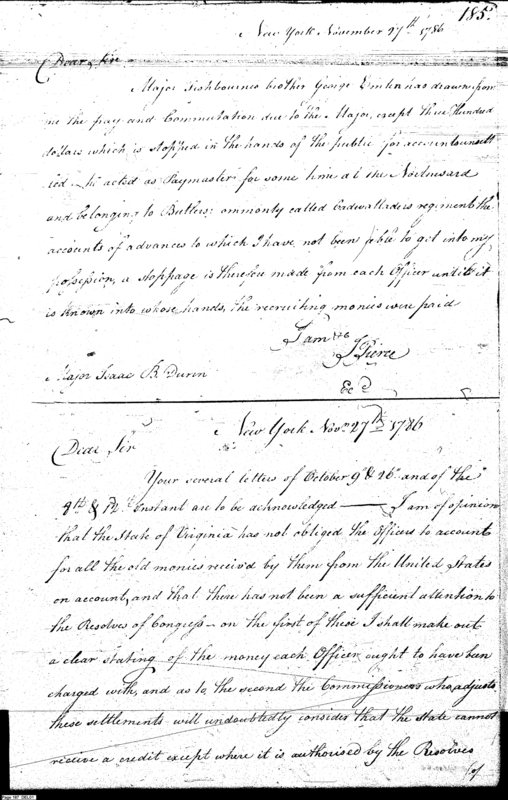 185.
New York November 27th 1786
Dear Sir
Major Fishbournes brother George Emlen has drawn from
me the pay and Commutation due to the Major, except three Hundred
dollars which is stopped in the hands of the public for accounts unsett
led - he acted as Paymaster for some time at the Northward
and belonging to Butlers, commonly called Cadwalladers regiment the
accounts of advances to which I have not been able to get into my
possession, a stoppage is therefore made from each Officer until it
is known into whose hands, the recruiting monies were paid
I am &c
J Pierce
Major Isaac B. Dunn
New York Novr. 27th 1786
Dear Sir
Your several letters of October 9th & 26th and of the
9th & 12th Instant are to be acknowledged — I am of opinion
that the State of Virginia has not obliged the Officers to account
for all the old monies receiv'd by them from the United States
on account, and that there has not been a sufficient attention to
the Resolves of Congress — on the first of these I shall make out
a clear stating of the money each Officer ought to have been
charged with, and as to the second the Commissioners who adjusts
these settlements will undoubtedly consider that the State cannot
receive a credit except where it is authorised by the Resolves
of